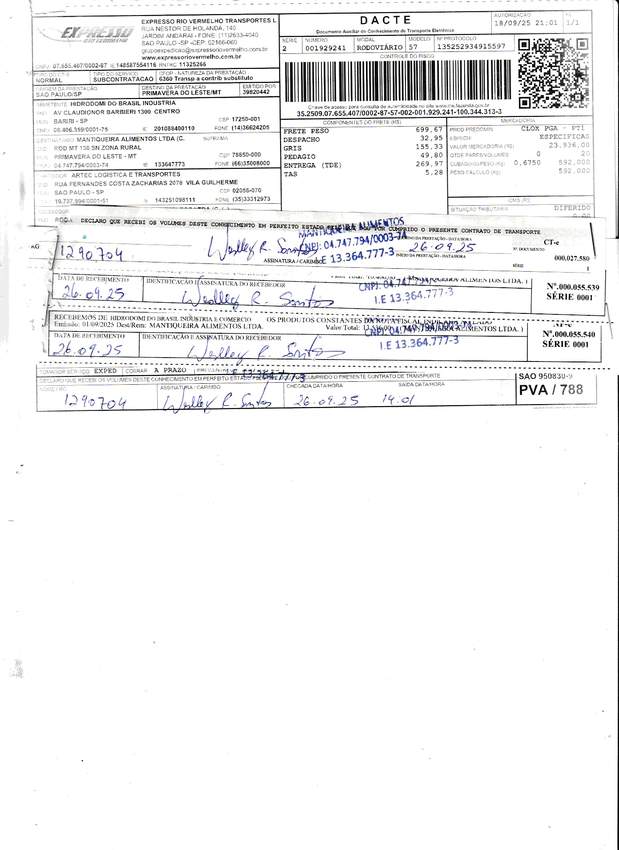 EXPRESSO
RIO VERMELHO
EXPRESSO RIO VERMELHO TRANSPORTES L
RUA NESTOR DE HOLANDA, 140
JARDIM ANDARAI - FONE: (11)2633-4040
SAO PAULO - SP - CEP:
www.expressoriovermelho.com.br
CNPJ: 07.655.407/0002-87 IE 148587554116 RNTRC 11325266
DACTE
Documento Auxiliar do Conhecimento de Transporte Eletrônico
SÉRIE 2
NÚMERO 001929241
MODAL RODOVIÁRIO
MODELO 57
Nº PROTOCOLO 135252934915597
AUTORIZAÇÃO 18/09/25 21:01
1/1
CONTROLE DO FISCO
Chave de acesso para consulta de autenticidade no site www.cte.fazenda.gov.br
35.2509.07.655.407/0002-87-57-002-001.929.241-100.344.313-3
NORMAL
TIPO DO SERVIÇO SUBCONTRATACAO
CFOP - NATUREZA DA PRESTAÇÃO
6360 Transp a contrib substituto
ORIGEM DA PRESTAÇÃO SAO PAULO/SP
DESTINO DA PRESTAÇÃO PRIMAVERA DO LESTE/MT
EMITIDO POR 39820442
REMETENTE HIDRODOMI DO BRASIL INDUSTRIA
AV CLAUDIONOR BARBIERI 1300 CENTRO
BARIRI - SP CEP 17250-001
IE 201088400110 FONE (14)36624205
DESTINATÁRIO MANTIQUEIRA ALIMENTOS LTDA (C. SUFRAMA
ROD MT 130 SN ZONA RURAL
PRIMAVERA DO LESTE - MT CEP 78850-000
04.747.794/0003-74 IE 133647773 FONE (66)35008000
ARTEC LOGISTICA E TRANSPORTES
RUA FERNANDES COSTA ZACHARIAS 2078 VILA GUILHERME
SAO PAULO - SP CEP 02055-070
19.737.994/0001-51 IE 143251098111 FONE (35)33312973
COMPONENTES DO FRETE (R$)
FRETE PESO 699,67
DESPACHO 32,95
GRIS 155,33
PEDAGIO 49,80
ENTREGA (TDE) 269,97
TAS 5,28
MERCADORIA
PROD PREDOMIN CLOX PGA - PT1
ESPÉCIE ESPECIFICAS
VALOR MERCADORIA (R$) 23.936,00
QTDE PARES/VOLUMES 0 20
CUBAGEM/PESO (KG) 0,6750 592,000
PESO CÁLCULO (KG) 592,000
SITUAÇÃO TRIBUTÁRIA DIFERIDO
DECLARO QUE RECEBI OS VOLUMES DESTE CONHECIMENTO EM PERFEITO ESTADO CUMPRIDO O PRESENTE CONTRATO DE TRANSPORTE
MANTIQUEIRA ALIMENTOS
CNPJ: 04.747.794/0003-74
I.E 13.364.777-3
1290704
Weslley R. Santos
ASSINATURA / CARIMBO
26.09.25
INÍCIO DA PRESTAÇÃO - DATA/HORA
CT-e
Nº. DOCUMENTO 000.027.580
SÉRIE 1
DATA DE RECEBIMENTO
IDENTIFICAÇÃO E ASSINATURA DO RECEBEDOR
26.09.25
Weslley R. Santos
I.E 13.364.777-3
Nº.000.055.539
SÉRIE 0001
RECEBEMOS DE HIDRODOMI DO BRASIL INDUSTRIA E COMERCIO OS PRODUTOS CONSTANTES DA NOTA FISCAL
Emissão: 01/09/2025 Dest/Rem: MANTIQUEIRA ALIMENTOS LTDA. Valor Total:
DATA DE RECEBIMENTO
IDENTIFICAÇÃO E ASSINATURA DO RECEBEDOR
26.09.25
Weslley R. Santos
I.E 13.364.777-3
Nº.000.055.540
SÉRIE 0001
TOMADOR SERVIÇO EXPED COBRAR A PRAZO
DECLARO QUE RECEBI OS VOLUMES DESTE CONHECIMENTO EM PERFEITO ESTADO CUMPRIDO O PRESENTE CONTRATO DE TRANSPORTE
NOME/RG
ASSINATURA / CARIMBO
CHEGADA DATA/HORA
SAÍDA DATA/HORA
1290704
Weslley R. Santos
26.09.25
14.01
SAO 950830-9
PVA / 788